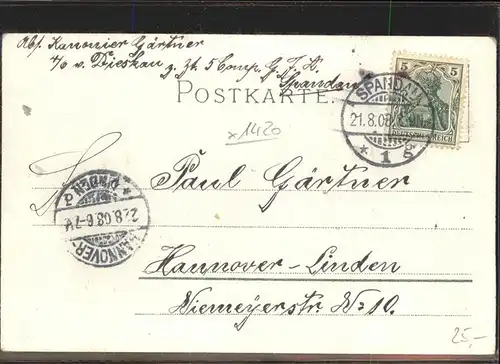 Abs. Kanonier Gärtner
z. Zt. 5 Comp. G. F. A.
Spandau
POSTKARTE.
5 5
DEUTSCHES REICH
SPANDAU
21.8.08
* 1 g
x1420
Paul Gärtner
LINDEN
22.8.08.6-7V.
HANNOVER-
Hannover-Linden
Niemeyerstr. No 10.
25,-